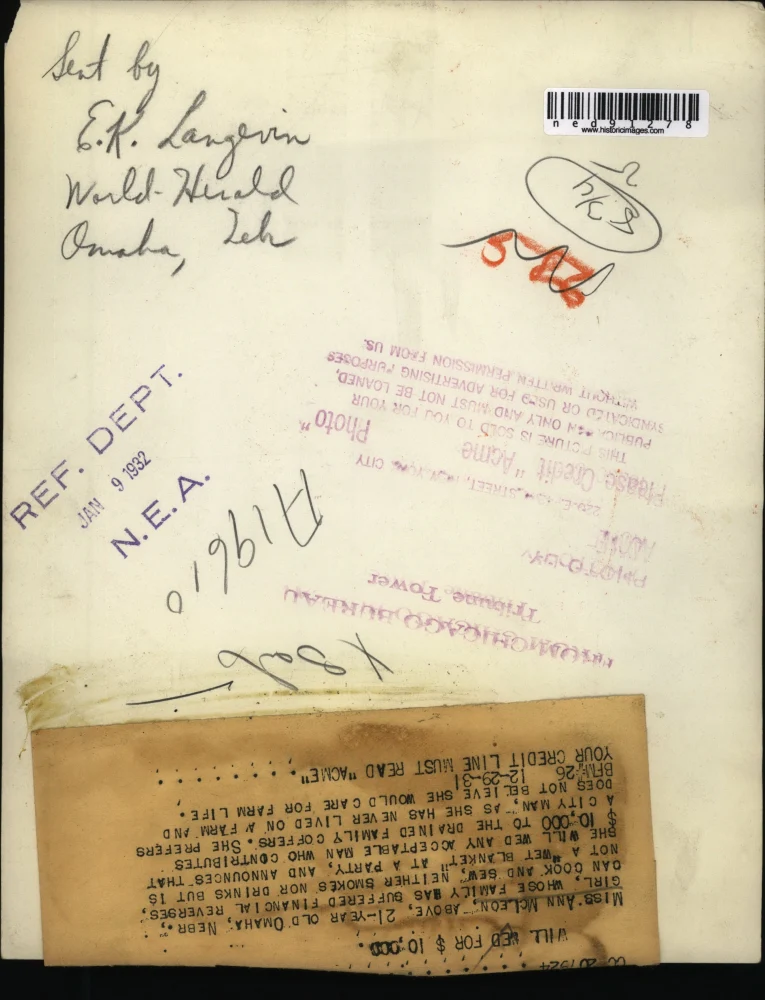 Sent by
E.K. Langevin
World-Herald
Omaha, Neb
ned91278
www.historicimages.com
REF. DEPT.
JAN 9 1932
N.E.A.
A19610
FROM CHICAGO BUREAU
Tribune Tower
PHOTO BY
ACME
STREET, NEW YORK CITY
Please Credit "Acme Photo"
THIS PICTURE IS SOLD TO YOU FOR YOUR
PUBLICATION ONLY AND MUST NOT BE LOANED,
SYNDICATED OR USED FOR ADVERTISING PURPOSES
WITHOUT WRITTEN PERMISSION FROM US.
WILL WED FOR $ 10,000.
MISS ANN MCLEON, ABOVE, 21-YEAR OLD OMAHA, NEBR.,
GIRL, WHOSE FAMILY HAS SUFFERED FINANCIAL REVERSES,
CAN COOK AND SEW, NEITHER SMOKES NOR DRINKS BUT IS
NOT A "WET BLANKET" AT A PARTY, AND ANNOUNCES THAT
SHE WILL WED ANY ACCEPTABLE MAN WHO CONTRIBUTES
$ 10,000 TO THE DRAINED FAMILY COFFERS. SHE PREFERS
A CITY MAN, AS SHE HAS NEVER LIVED ON A FARM AND
DOES NOT BELIEVE SHE WOULD CARE FOR FARM LIFE.
BFM-26 12-29-31
YOUR CREDIT LINE MUST READ "ACME"